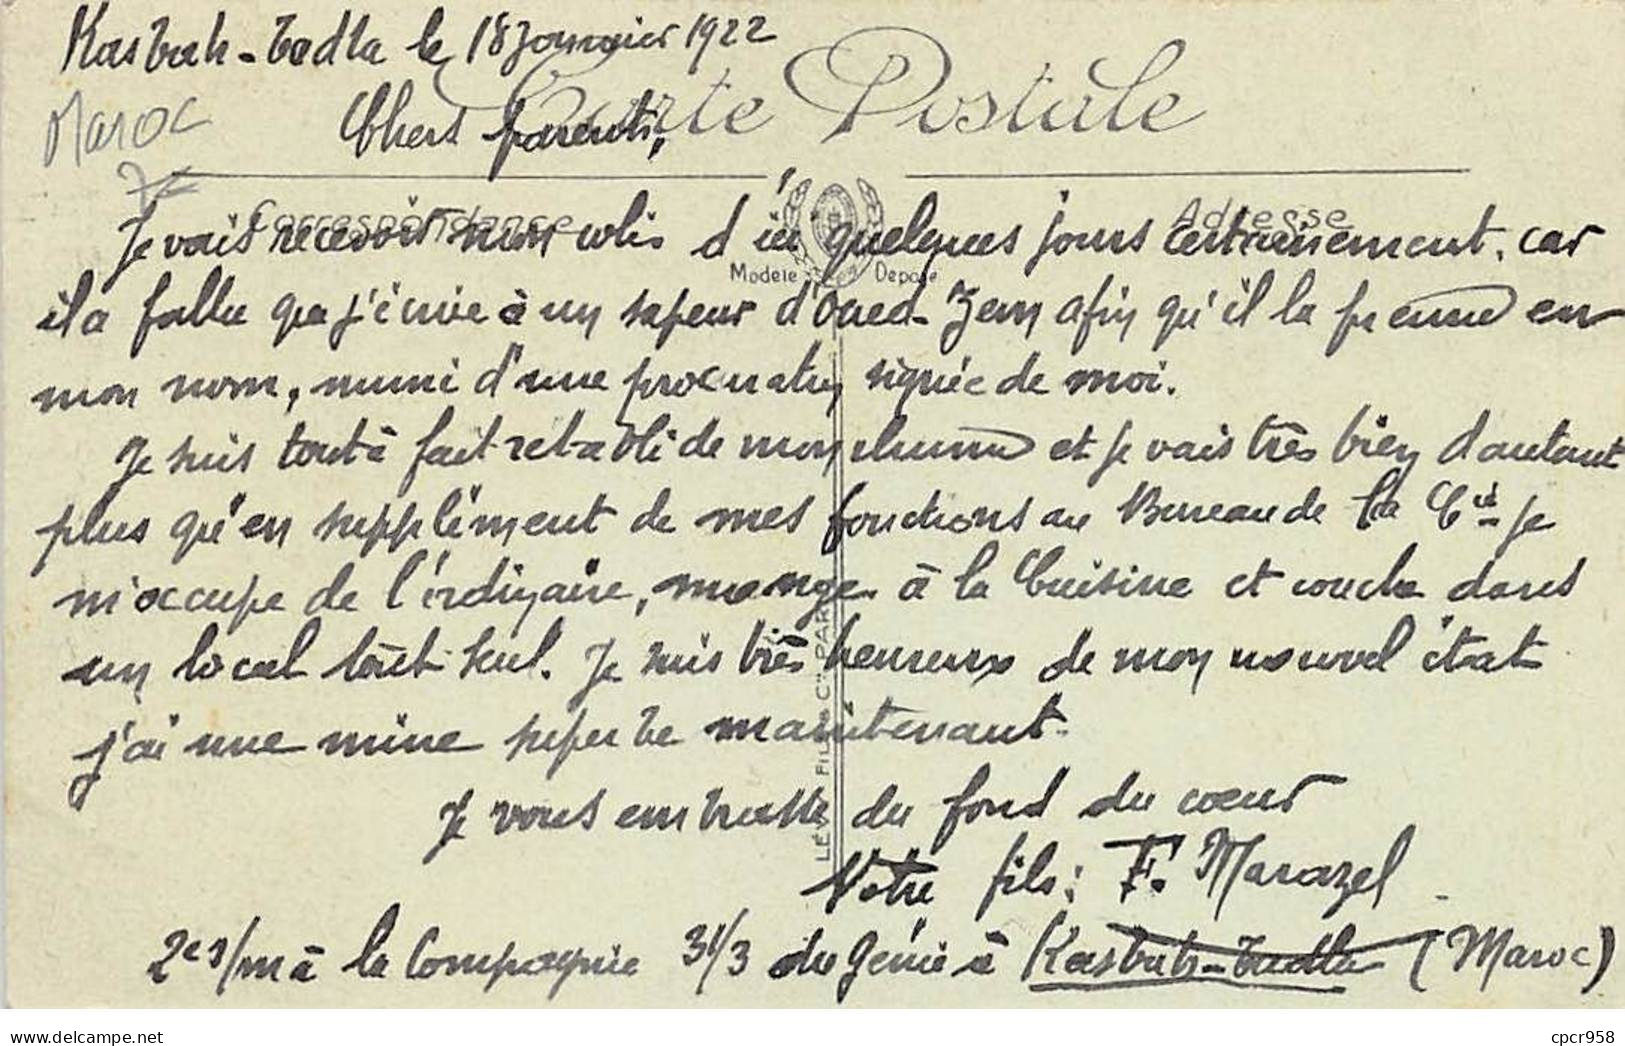 Kasbah-Tadla le 18 Janvier 1922
Carte Postale
Maroc
Chers parents,
Correspondance
Adresse
Je vais recevoir mon colis d'ici quelques jours certainement, car
Modèle Déposé
il a fallu que j'écrive à un sapeur d'Oued-Zem afin qu'il le prenne en
mon nom, muni d'une procuration signée de moi.
Je suis tout à fait rétabli de mon rhume et je vais très bien d'autant
plus qu'en supplément de mes fonctions au Bureau de la Cie je
m'occupe de l'ordinaire, mange à la Cuisine et couche dans
un local tout seul. Je suis très heureux de mon nouvel état
j'ai une mine superbe maintenant.
Je vous embrasse du fond du cœur
Votre fils: F. Marazel
2e s/m à la Compagnie 31/3 du Génie à Kasbah-Tadla (Maroc)
LÉVY FILS & Cie PARIS
delcampe.net
cpcr958